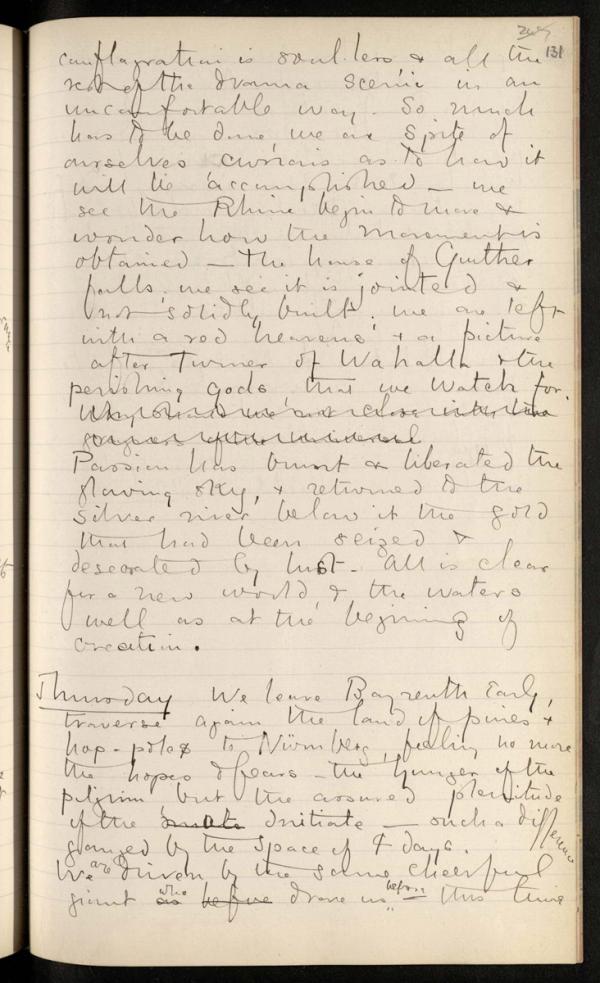 131
conflagration is soul-less & all the
rest of the drama scenic in an
uncomfortable way. So much
has to be done, we are spite of
ourselves curious as to how it
will be accomplished – we
see the Rhine begin to move &
wonder how the movement is
obtained – the house of Gunther
falls, we see it is jointed &
not solidly built, we are left
with a red heavens & a picture
after Turner of Walhalla & the
perishing gods that we watch for.
Passion has burnt & liberated the
glowing sky, & returned to the
silver river below it the gold
that had been seized &
desecrated by lust – All is clear
for a new world & the waters
well as at the beginning of
creation.
Thursday We leave Bayreuth Early,
traverse again the land of pines &
hop-poles to Nürnberg, feeling no more
the hopes & fears – the hunger of the
pilgrim but the assured plenitude
of the Initiate – such a difference
gained by the space of 4 days.
We are driven by the same cheerful
giant as before who drove us before – this time